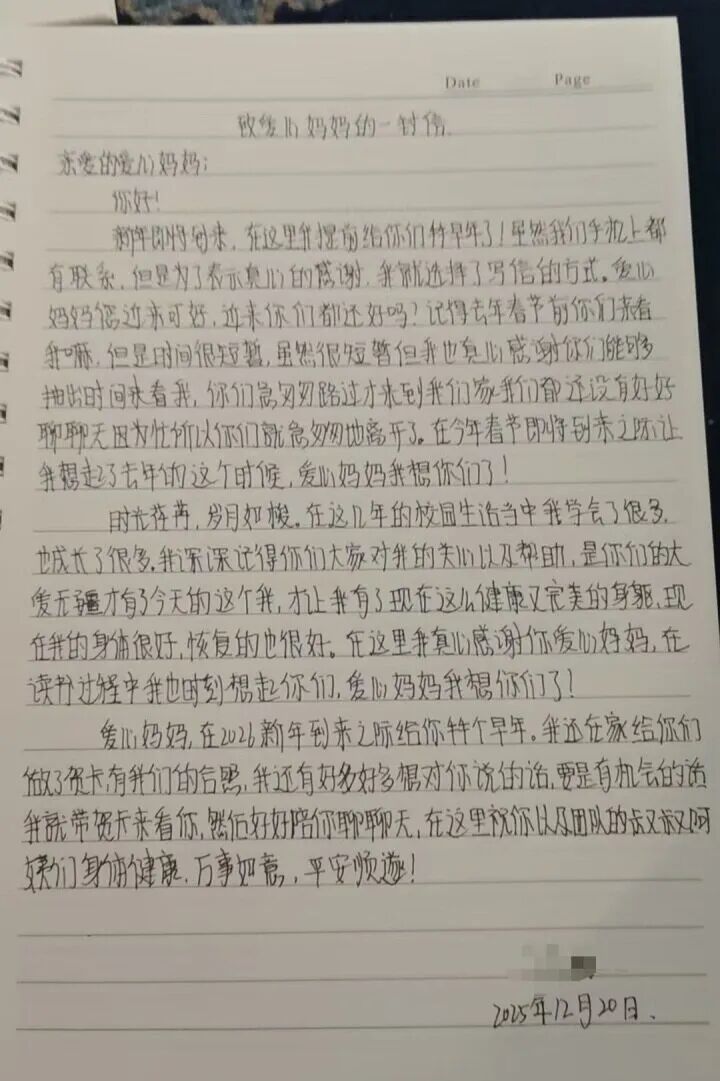 Date Page
致爱心妈妈的一封信.
亲爱的爱心妈妈:
你好!
新年即将到来, 在这里我提前给你们拜早年了! 虽然我们手机上都
有联系, 但是为了表示真心的感谢, 我就选择了写信的方式。爱心
妈妈您近来可好, 近来你们都还好吗? 记得去年春节前你们来看
我嘛, 但是时间很短暂, 虽然很短暂但我也真心感谢你们能够
抽出时间来看我, 你们急匆匆路过才来到我们家我们都还没有好好
聊聊天因为忙所以你们就急匆匆地离开了。在今年春节即将到来之际让
我想起了去年的这个时候, 爱心妈妈我想你们了!
时光荏苒, 岁月如梭。在这几年的校园生活当中我学会了很多,
也成长了很多, 我深深记得你们大家对我的关心以及帮助, 是你们的大
爱无疆才有了今天的这个我, 才让我有了现在这么健康又完美的身躯, 现
在我的身体很好, 恢复的也很好。在这里我真心感谢你爱心妈妈, 在
读书过程中我也时刻想起你们, 爱心妈妈我想你们了!
爱心妈妈, 在2026新年到来之际给你拜个早年。我还在家给你们
做了贺卡, 有我们的合照, 我还有好多好多想对你说的话, 要是有机会的话
我就带贺卡来看你, 然后好好陪你聊聊天, 在这里祝你以及团队的叔叔阿
姨们身体健康, 万事如意, 平安顺遂!
2025年12月20日.